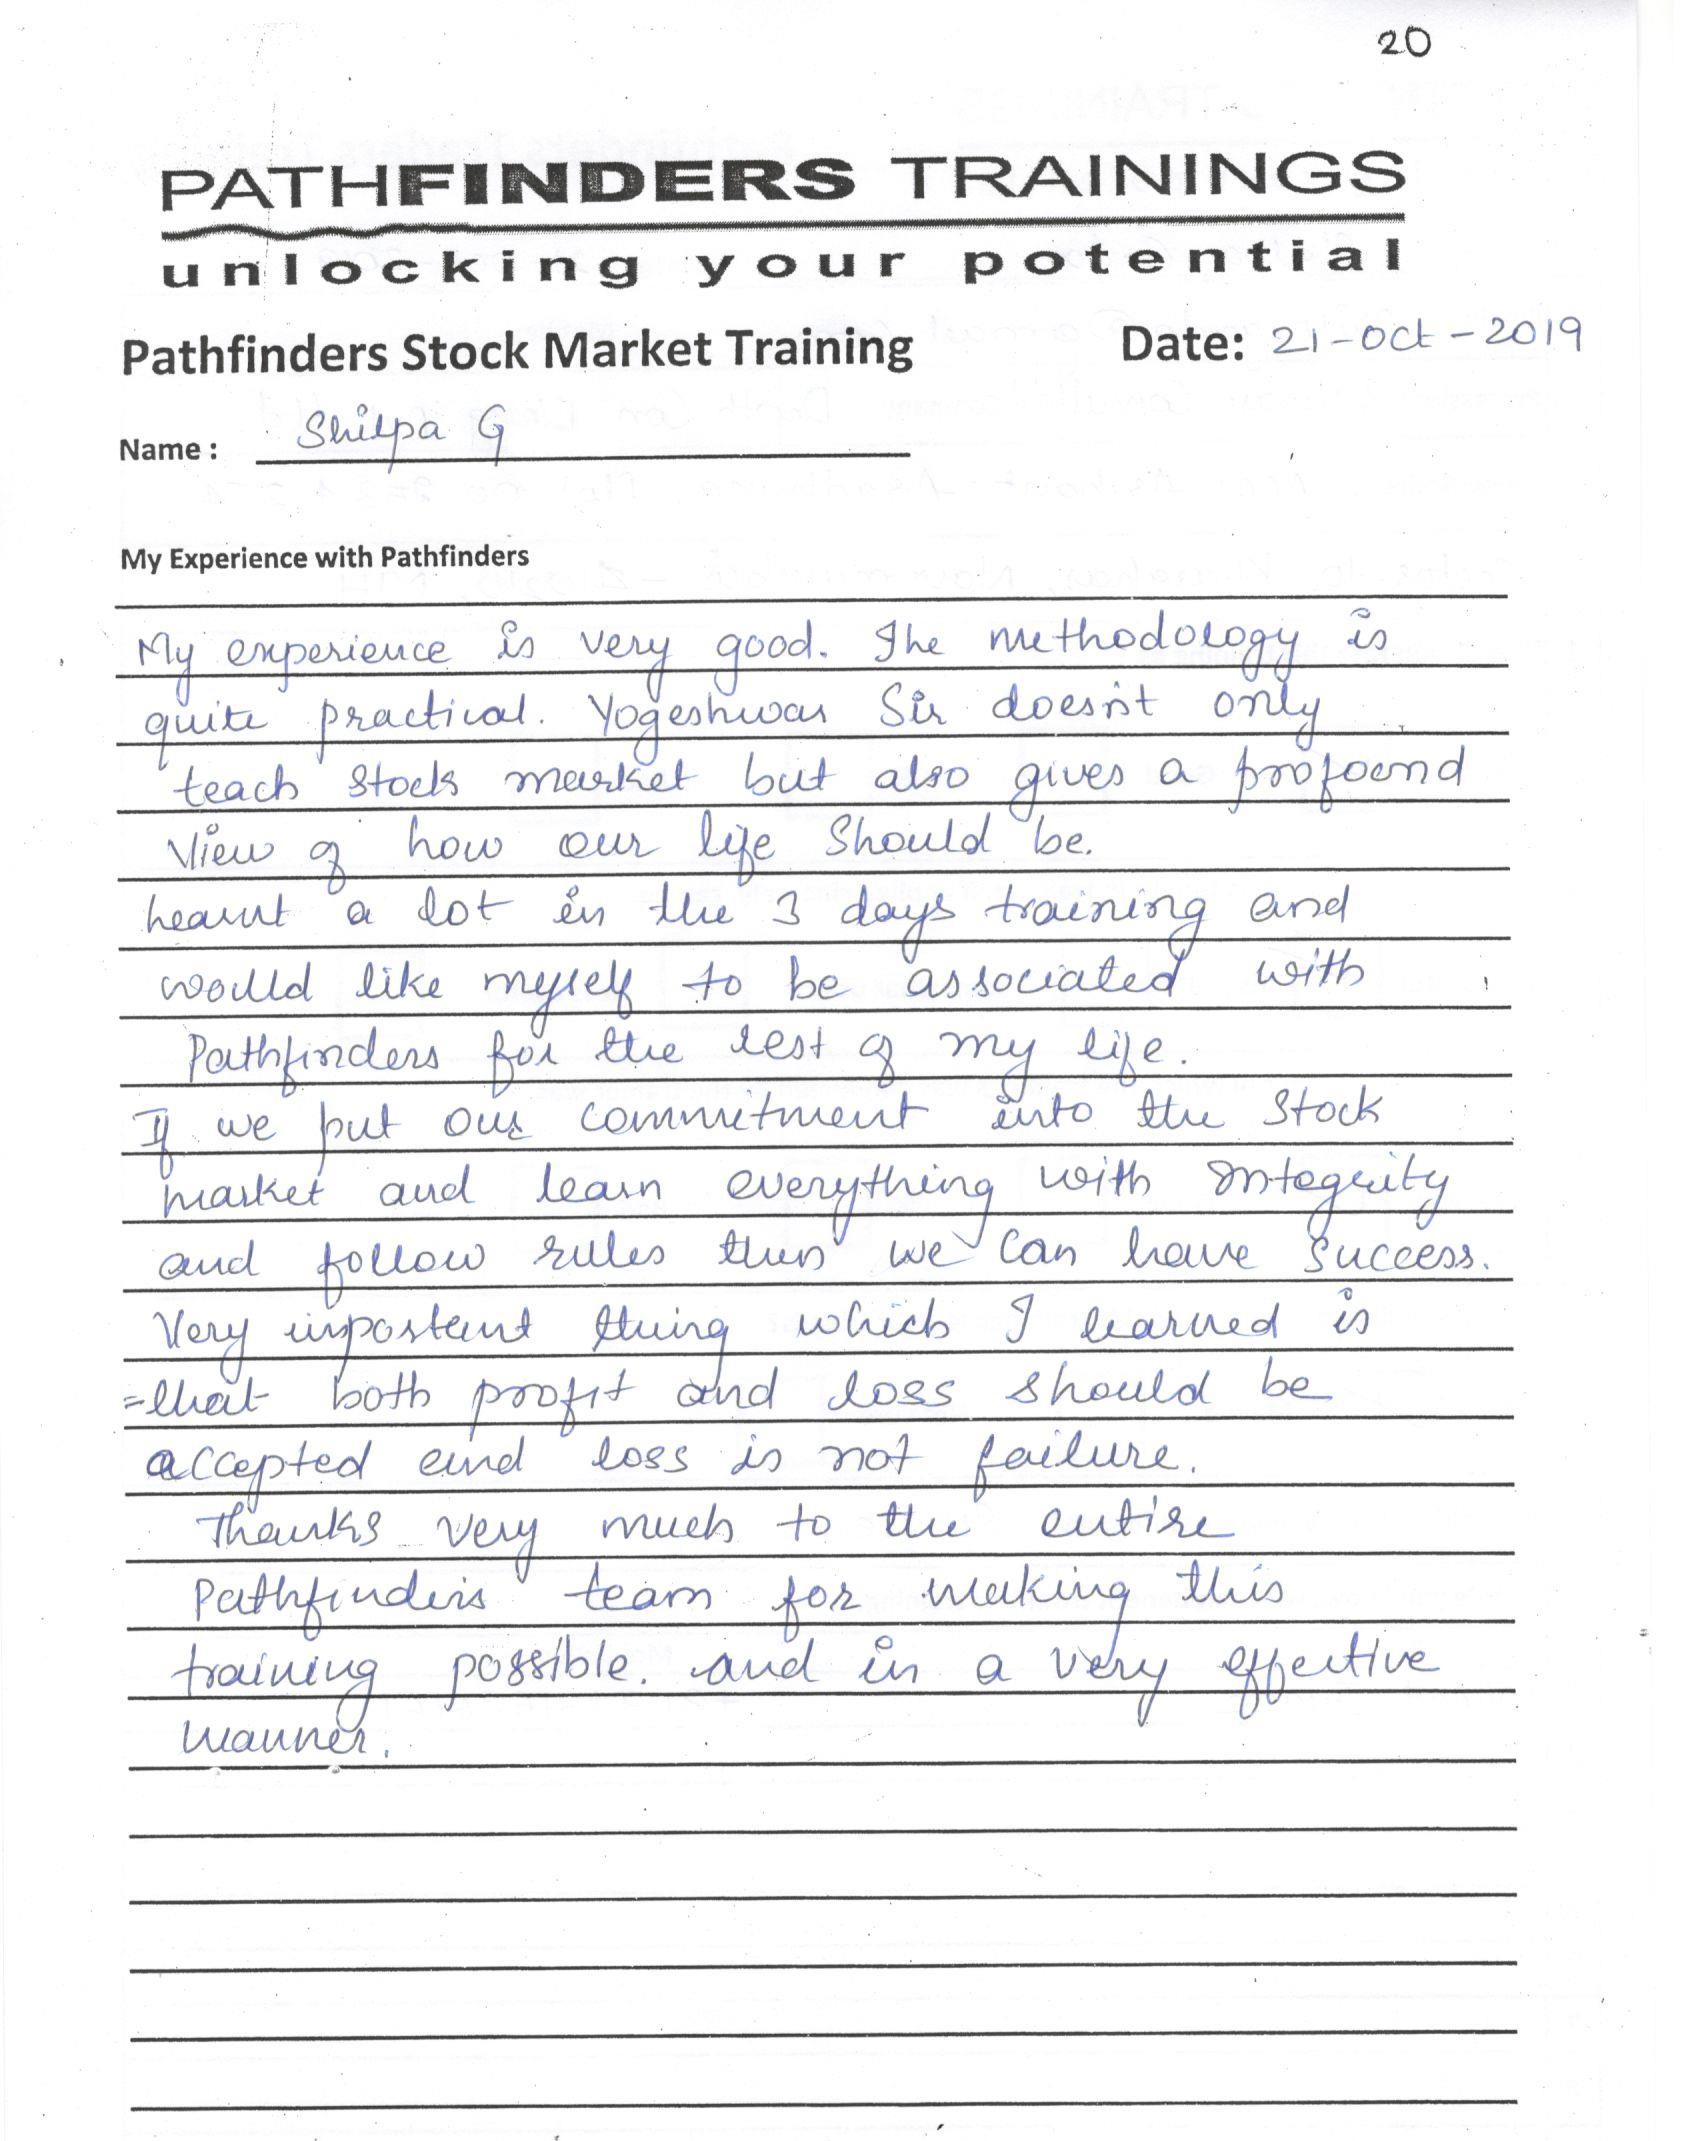 20
PATHFINDERS TRAININGS
unlocking your potential
Pathfinders Stock Market Training Date: 21-Oct-2019
Name: Shilpa G
My Experience with Pathfinders
My experience is very good. The methodology is
quite practical. Yogeshwar Sir doesn't only
teach stock market but also gives a profound
view of how our life should be.
Learnt a lot in the 3 days training and
would like myself to be associated with
Pathfinders for the rest of my life.
If we put our commitment into the stock
market and learn everything with integrity
and follow rules then we can have success.
Very important thing which I learned is
that both profit and loss should be
accepted and loss is not failure.
Thanks very much to the entire
Pathfinders team for making this
training possible. and in a very effective
manner.